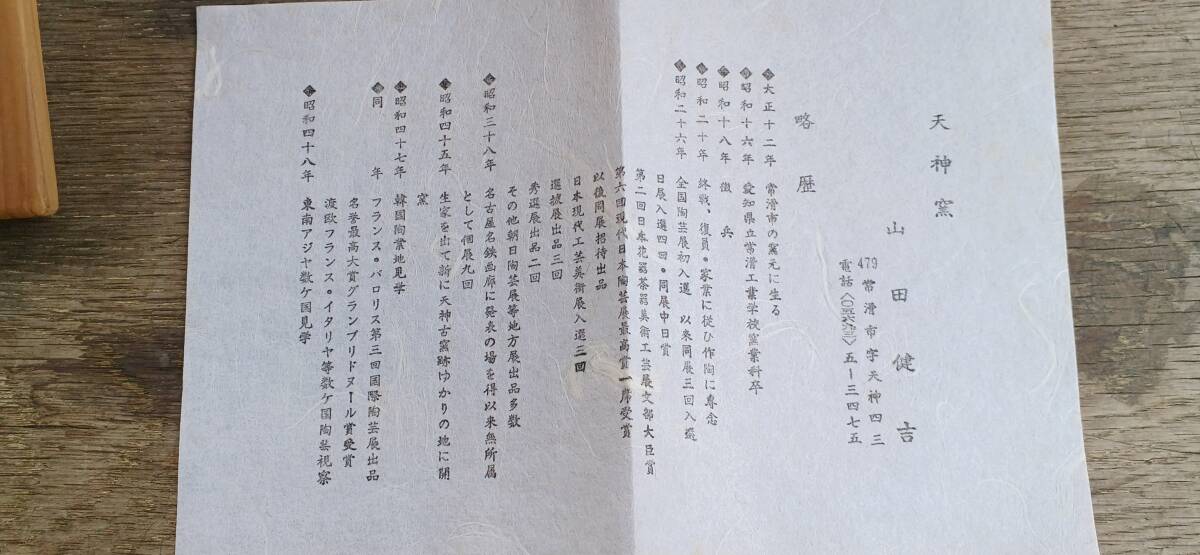 天神窯
山田健吉
479 常滑市字天神四三
電話〈〇五六九三〉五―三四七五
略歴
大正十二年 常滑市の窯元に生る
昭和十六年 愛知県立常滑工業学校窯業科卒
昭和十八年 徴兵
昭和二十年 終戦、復員・家業に従ひ作陶に専念
昭和二十六年 全国陶芸展初入選 以来同展三回入選
日展入選四回・同展中日賞
第二回日本花器茶器美術工芸展文部大臣賞
第六回現代日本陶芸展最高賞一席受賞
以後同展招待出品
日本現代工芸美術展入選三回
選抜展出品三回
秀選展出品二回
その他朝日陶芸展等地方展出品多数
昭和三十八年 名古屋名鉄画廊に発表の場を得以来無所属
として個展九回
昭和四十五年 生家を出て新に天神古窯跡ゆかりの地に開
窯
昭和四十七年 韓国陶業地見学
同 年 フランス・バロリス第三回国際陶芸展出品
名誉最高大賞グランプリドヌール賞受賞
渡欧フランス・イタリヤ等数ケ国陶芸視察
昭和四十八年 東南アジヤ数ケ国見学